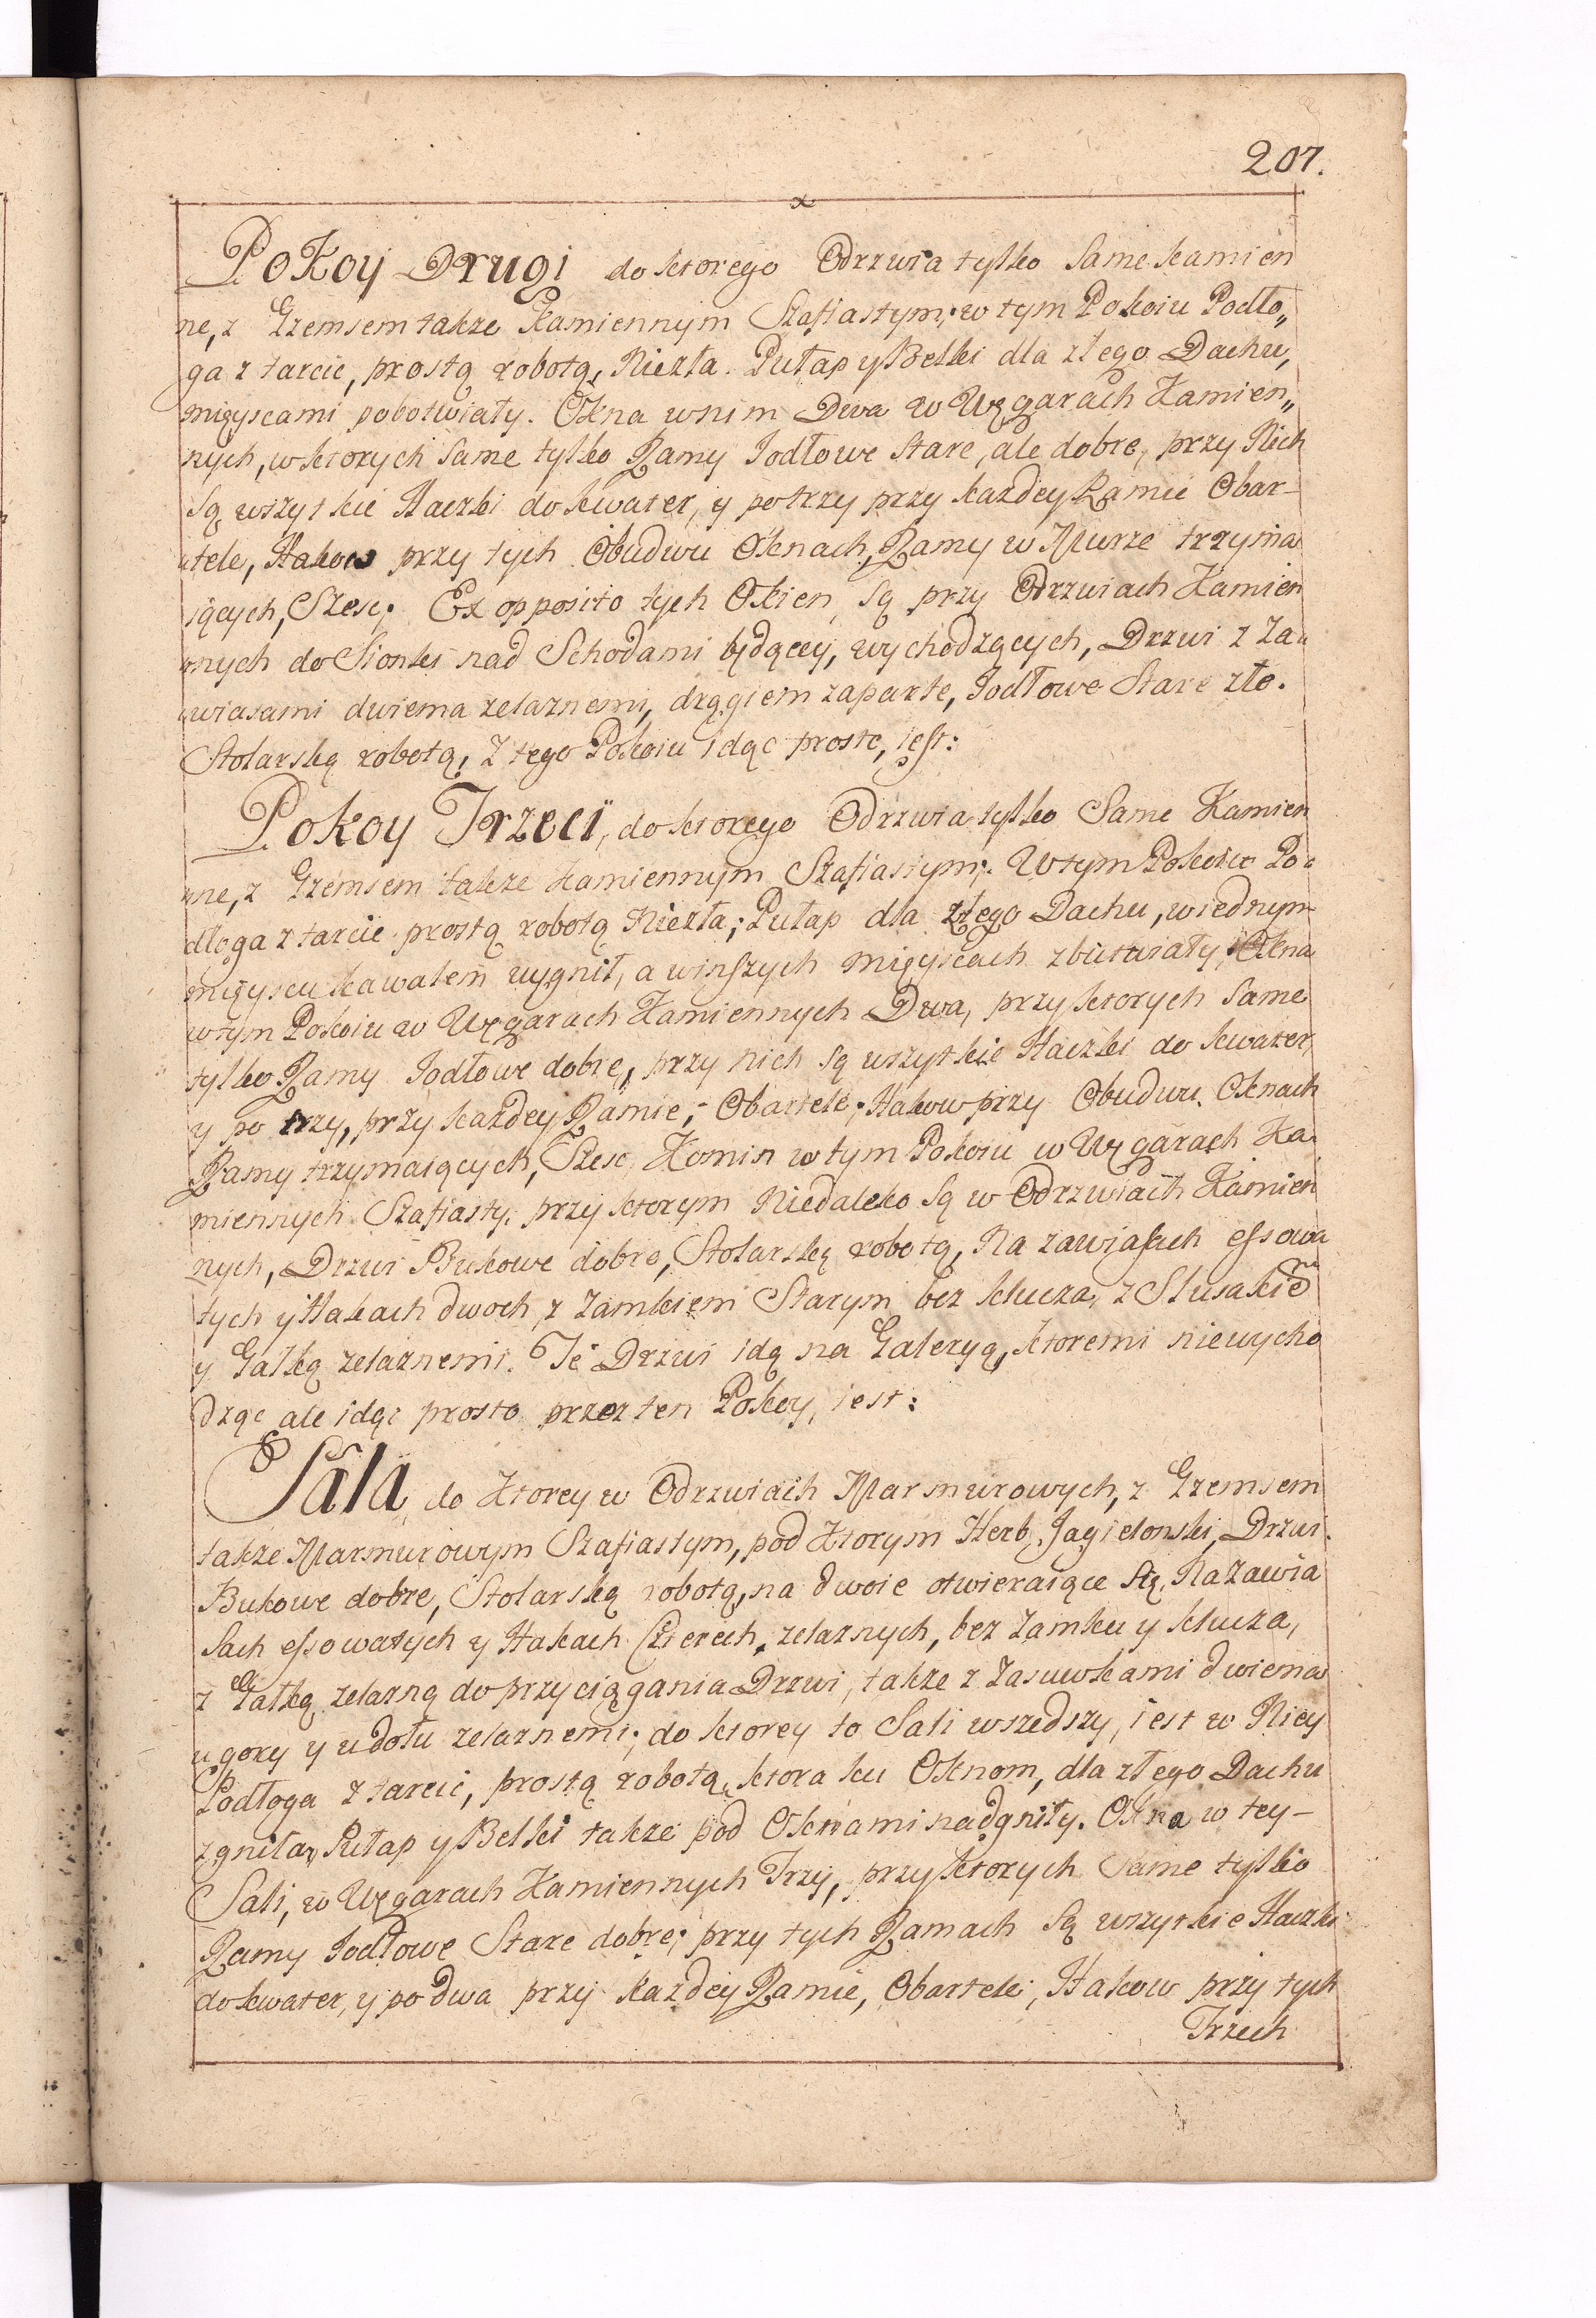 207.
Pokoy Drugi do ktorego Odrzwia tylko same kamien
ne, z Gzemsem takze kamiennym Szafiastym; w tym Pokoiu Podło„
ga z tarcic, prostą robotą, Niezła. Pułap y Belki dla złego Dachu,
mieyscami pobotwiały. Okna w nim Dwa w Węgarach Kamien„
nych, w ktorych same tylko Ramy Jodłowe stare, ale dobre, przy Nich
są wszytkie Haczki do kwater, y po trzy przy kazdey Ramie Obar-
tele, Hakow przy tych Obudwu Oknach, Ramy w Murze trzyma
iących, Szesc; Ex opposito tych Okien, są przy Odrzwiach Kamien
nych do Sionki nad Schodami będącey, wychodzących, Drzwi z Za„
wiasami dwiema zelaznemi, drągiem zaparte, Jodłowe Stare złe.
Stolarską robotą, Z tego Pokoiu idąc prosto, iest:
Pokoy Trzeci, do ktorego Odrzwia tylko Same Kamien
ne, z Gzemsem takze kamiennym Szafiastym; W tym Pokoiu Po„
dłoga z tarcic prostą robotą Niezła; Pułap dla złego Dachu, w iednym
mieyscu kawałem wygnił, a w inszych mieyscach zbutwiały, Okna
w tym Pokoiu w Węgarach Kamiennych Dwa, przy ktorych same
tylko Ramy Jodłowe dobre, przy nich są wszytkie Haczki do kwater,
y po trzy, przy kazdey Ramie, Obartele; Hakow przy Obudwu Oknach
Ramy trzymaiących, Szesc, Komin w tym Pokoiu w Węgarach Ka
miennych Szafiasty. przy ktorym Niedaleko są w Odrzwiach Kamien
nych, Drzwi Bukowe dobre, Stolarską robotą, Na zawiasach essowa
tych y Hakach dwoch, z Zamkiem Starym bez klucza, z Slusakiem
y Gałką zelaznemi. Te Drzwi idą na Galeryą, ktoremi niewycho
dząc ale idąc prosto przez ten Pokoy, iest:
Sala do Ktorey w Odrzwiach Marmurowych, z Gzemsem
takze Marmurowym Szafiastym, pod Ktorym Herb Jagielonski, Drzwi
Bukowe dobre, Stolarską robotą, na dwoie otwieraiące się, Na zawia
sach essowatych y Hakach Czterech, zelaznych, bez Zamku y klucza,
z Gałką zelazną do przyciągania Drzwi, takze z Zasuwkami dwiema
u gory y u dołu zelaznemi; do ktorey to Sali wszedszy, iest w Niey
Podłoga z tarcic, prostą robotą, ktora ku Oknom, dla złego Dachu
zgniła, Pułap y Belki takze pod Oknami nadgniły. Okna w tey-
Sali, w Węgarach Kamiennych Trzy, przy Ktorych Same tylko
Ramy Jodłowe Stare dobre; przy tych Ramach są wszytkie Haczki
do kwater, y po dwa przy kazdey Ramie, Obartele; Hakow przy tych
Trzech